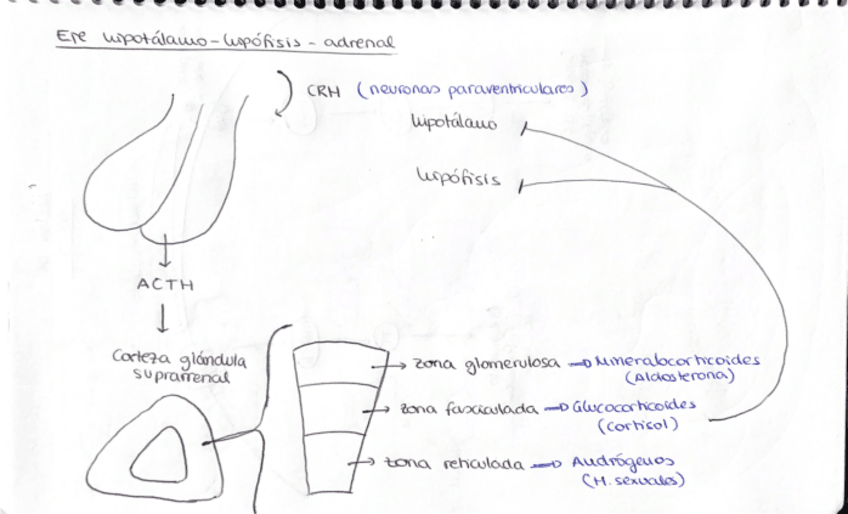 Eje hipotálamo-hipófisis-adrenal
CRH (neuronas paraventriculares)
hipotálamo
hipófisis
ACTH
Corteza glándula
suprarrenal
zona glomerulosa → Mineralocorticoides
(Aldosterona)
zona fasciculada → Glucocorticoides
(Cortisol)
zona reticulada → Andrógenos
(H. sexuales)